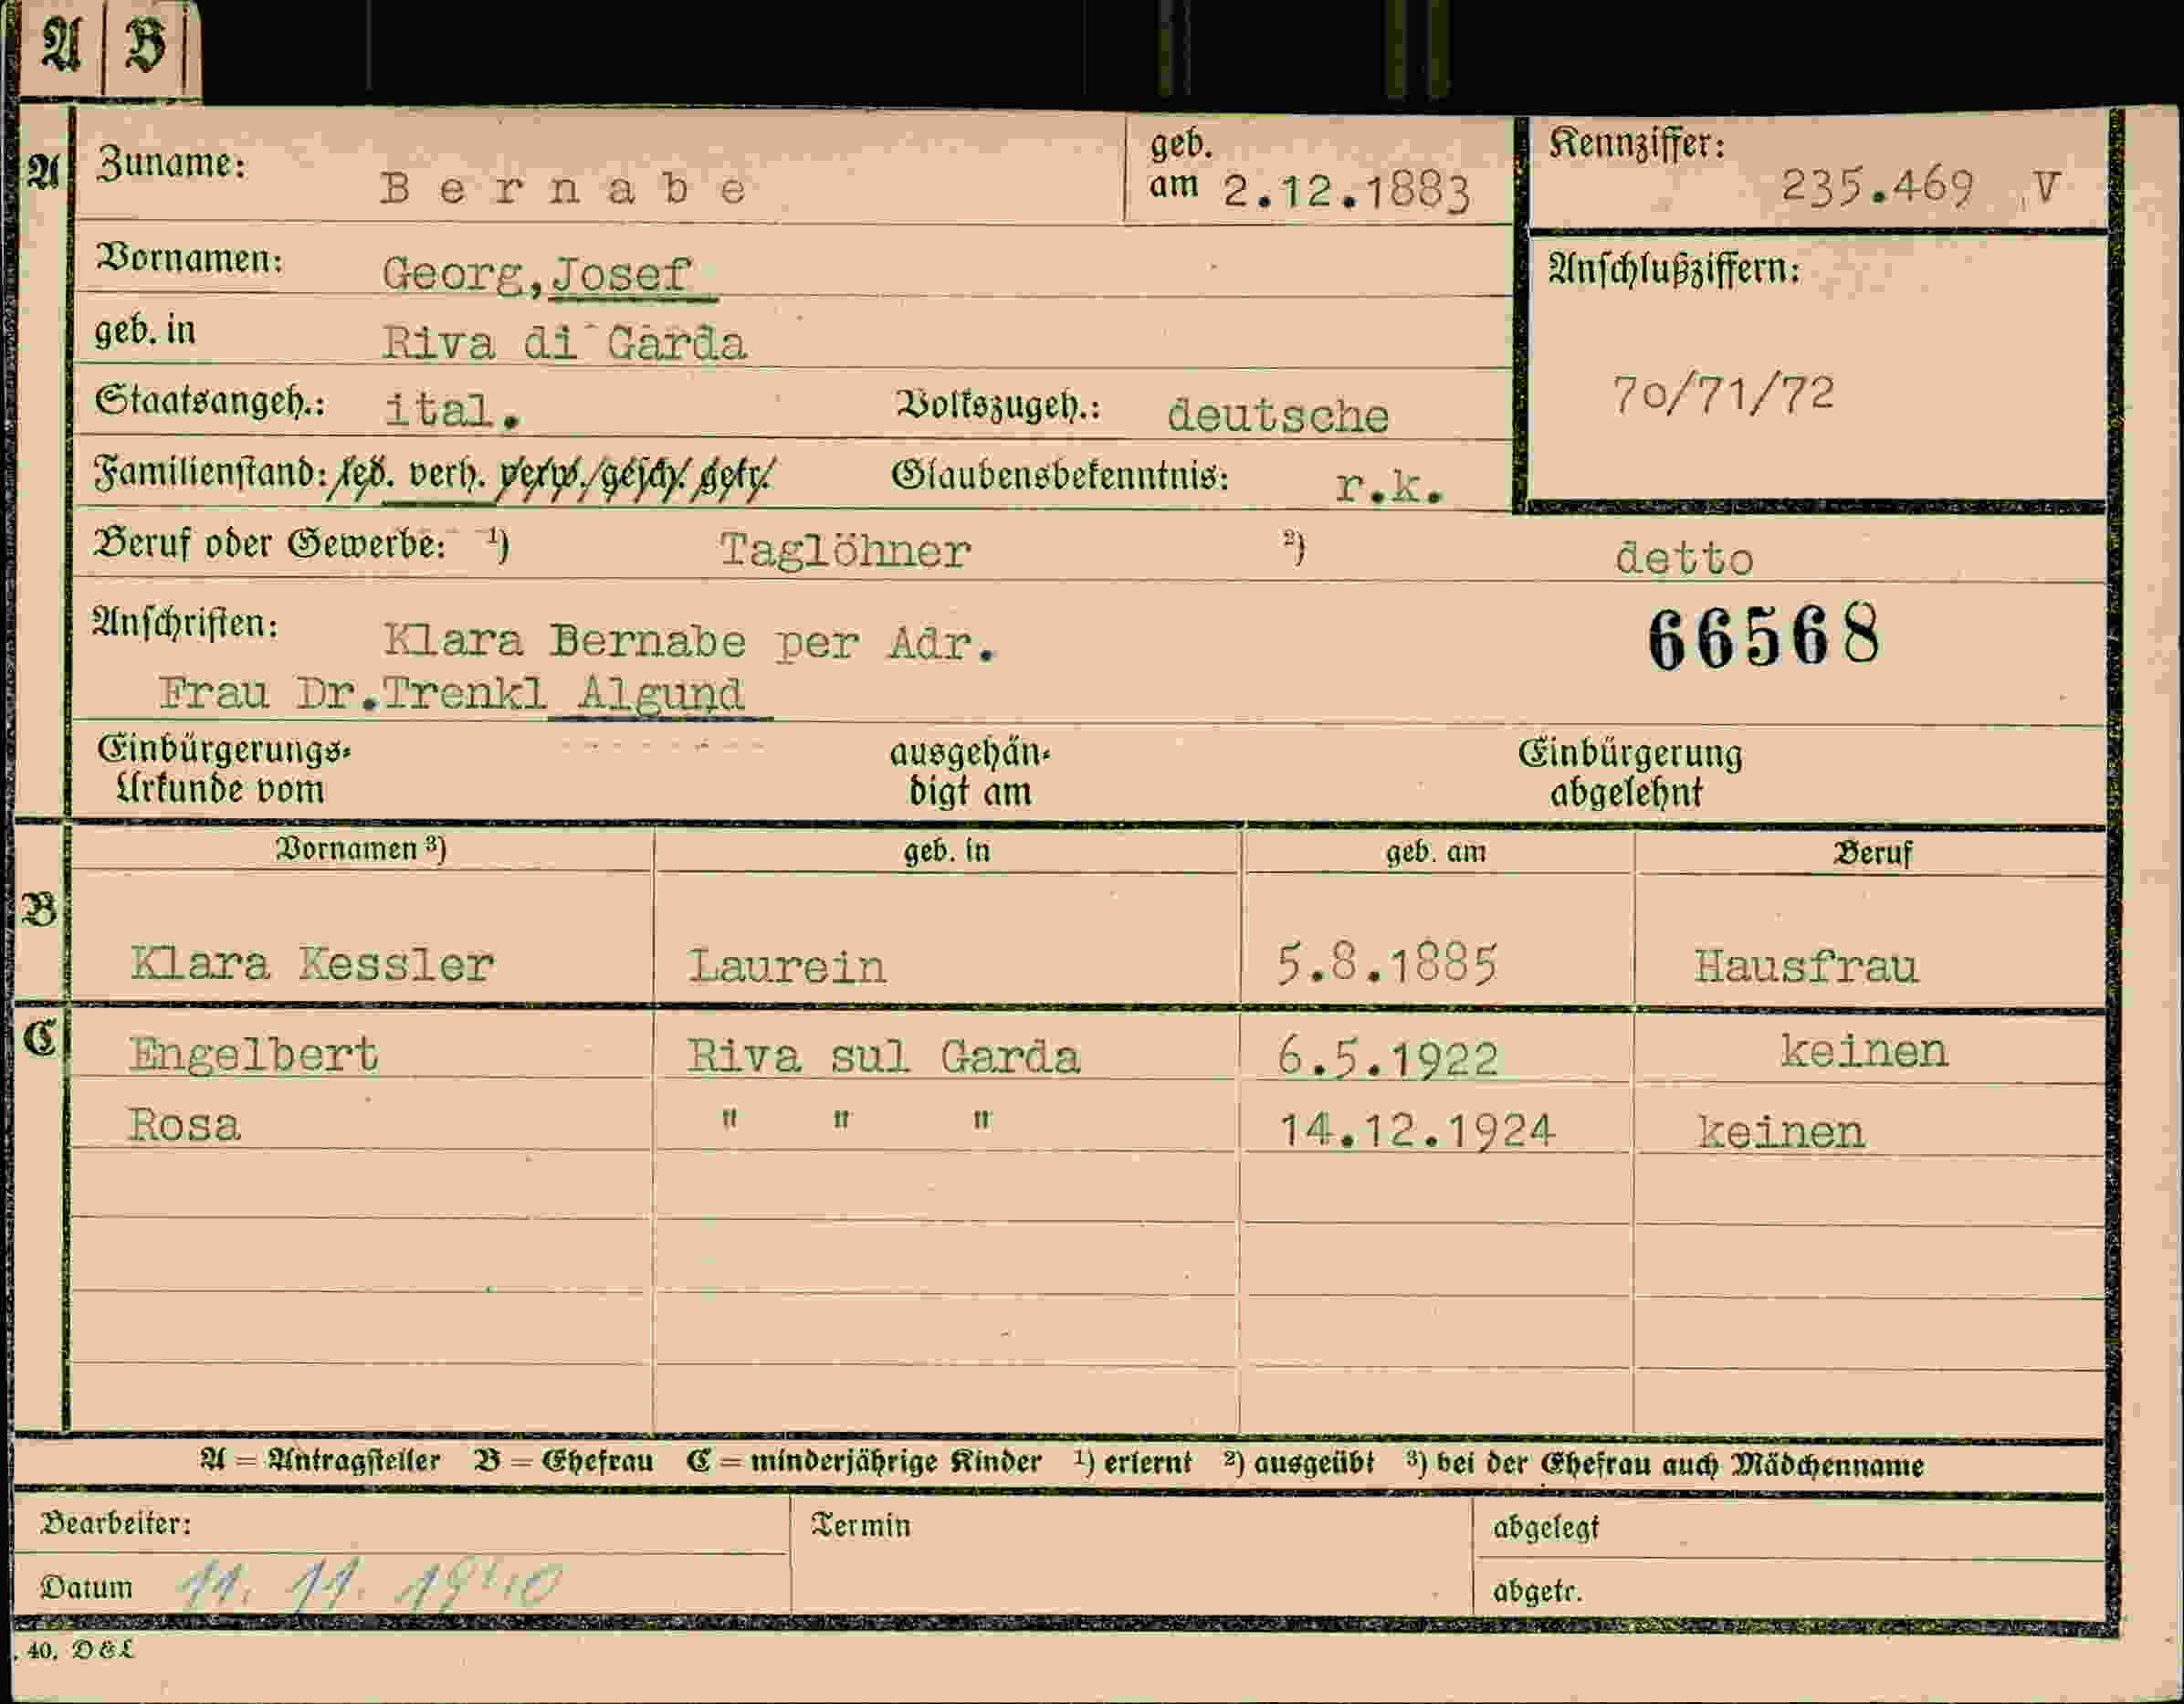 A B
A Zuname: Bernabe geb. am 2.12.1883 Kennziffer: 235.469 V
Vornamen: Georg,Josef Anschlußziffern:
geb. in Riva di Garda
70/71/72
Staatsangeh.: ital. Volkszugeh.: deutsche
Familienstand: led. verh. verw. gesch. getr. Glaubensbekenntnis: r.k.
Beruf oder Gewerbe: 1) Taglöhner 2) detto
Anschriften: Klara Bernabe per Adr. 66568
Frau Dr.Trenkl Algund
Einbürgerungs- ausgehän- Einbürgerung
Urkunde vom digt am abgelehnt
Vornamen 3) geb. in geb. am Beruf
B
Klara Kessler Laurein 5.8.1885 Hausfrau
C Engelbert Riva sul Garda 6.5.1922 keinen
Rosa " " " 14.12.1924 keinen
A = Antragsteller B = Ehefrau C = minderjährige Kinder 1) erlernt 2) ausgeübt 3) bei der Ehefrau auch Mädchenname
Bearbeiter: Termin abgelegt
Datum 11. 11. 1940 abgetr.
. 40, D&L